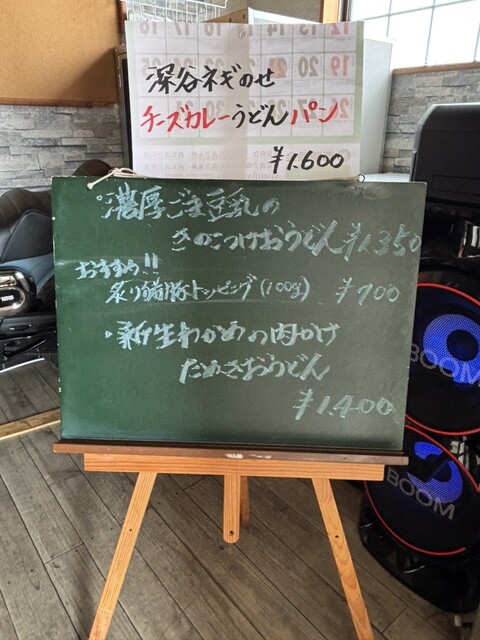 深谷ネギのせ
チーズカレーうどんパン
¥1.600
濃厚ごま豆乳の
きのこつけおうどん ¥1.350
おすすめ!!
炙り 豚トッピング(100g) ¥700
・新生わかめの肉かけ
たぬきおうどん
¥1.400
BOOM
BOOM